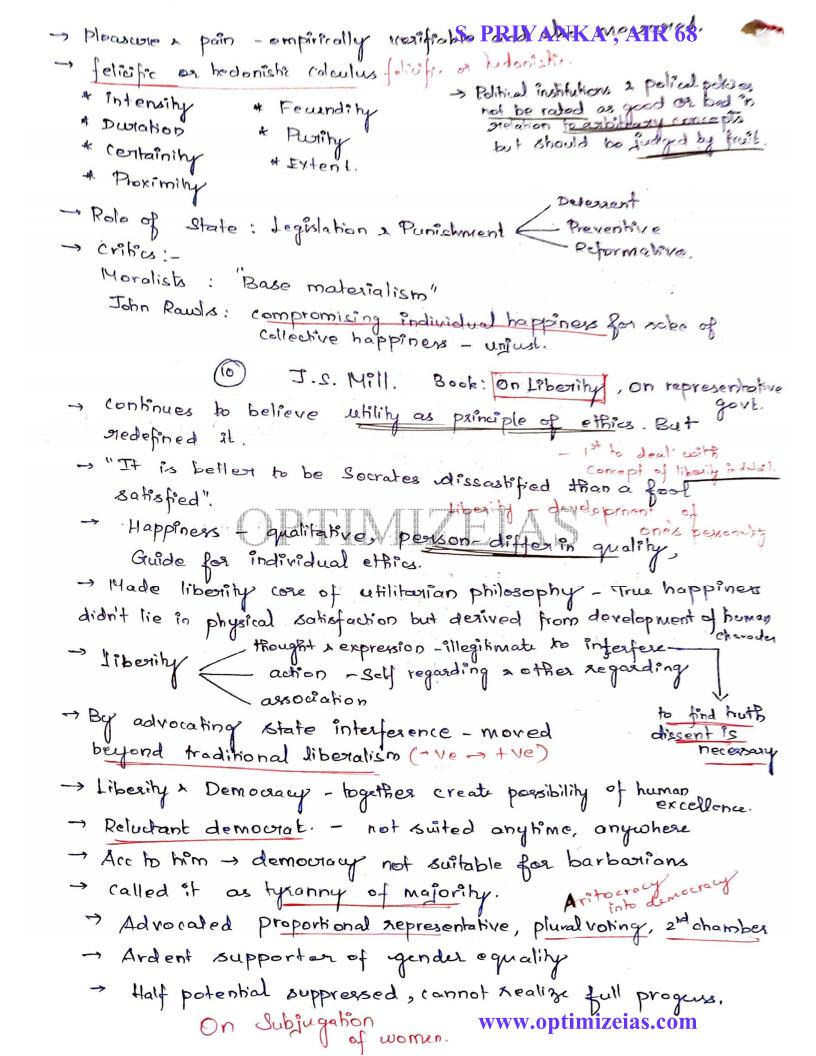 S. PRIYANKA, AIR 68
→ Pleasure & pain - empirically verifiable and be measured.
→ felicific or hedonistic calculus felicific or hedonistic
* Intensity
* Duration
* Certainity
* Proximity
* Fecundity
* Purity
* Extent.
→ Political institutions & polical policies
not be rated as good or bad in
relation to arbitrary concepts
but should be judged by fruit.
→ Role of State : Legislation & Punishment
Deterrent
Preventive
Reformative.
→ Critics :-
Moralists : "Base materialism"
John Rawls : compromising individual happiness for sake of
collective happiness - unjust.
10 J.S. Mill. Book: On Liberity, On representative
govt.
→ continues to believe utility as principle of ethics. But
redefined it.
- 1st to deal with
concept of liberity in detail.
→ "It is better to be Socrates dissastified than a fool
satisfied".
Liberity - development of
one's personality
OPTIMIZEIAS
→ Happiness - qualitative, person-differ in quality,
Guide for individual ethics.
→ Made liberity core of utilitarian philosophy - True happiness
didn't lie in physical satisfaction but derived from development of human
character
→ Liberity
thought & expression - illegitimate to interfere
action - Self regarding & other regarding
association
to find truth
dissent is
necessary
→ By advocating state interference - moved
beyond traditional liberalism (-ve → +ve)
→ Liberity & Democracy - together create possibility of human
excellence.
→ Reluctant democrat. - not suited anytime, anywhere
→ Acc to him → democracy not suitable for barbarians
→ called it as tyranny of majority.
Aritocracy
into democracy
→ Advocated proportional representative, plural voting, 2nd chamber
→ Ardent supporter of gender equality
→ Half potential suppressed, cannot realize full progess.
On Subjugation
of women.
www.optimizeias.com